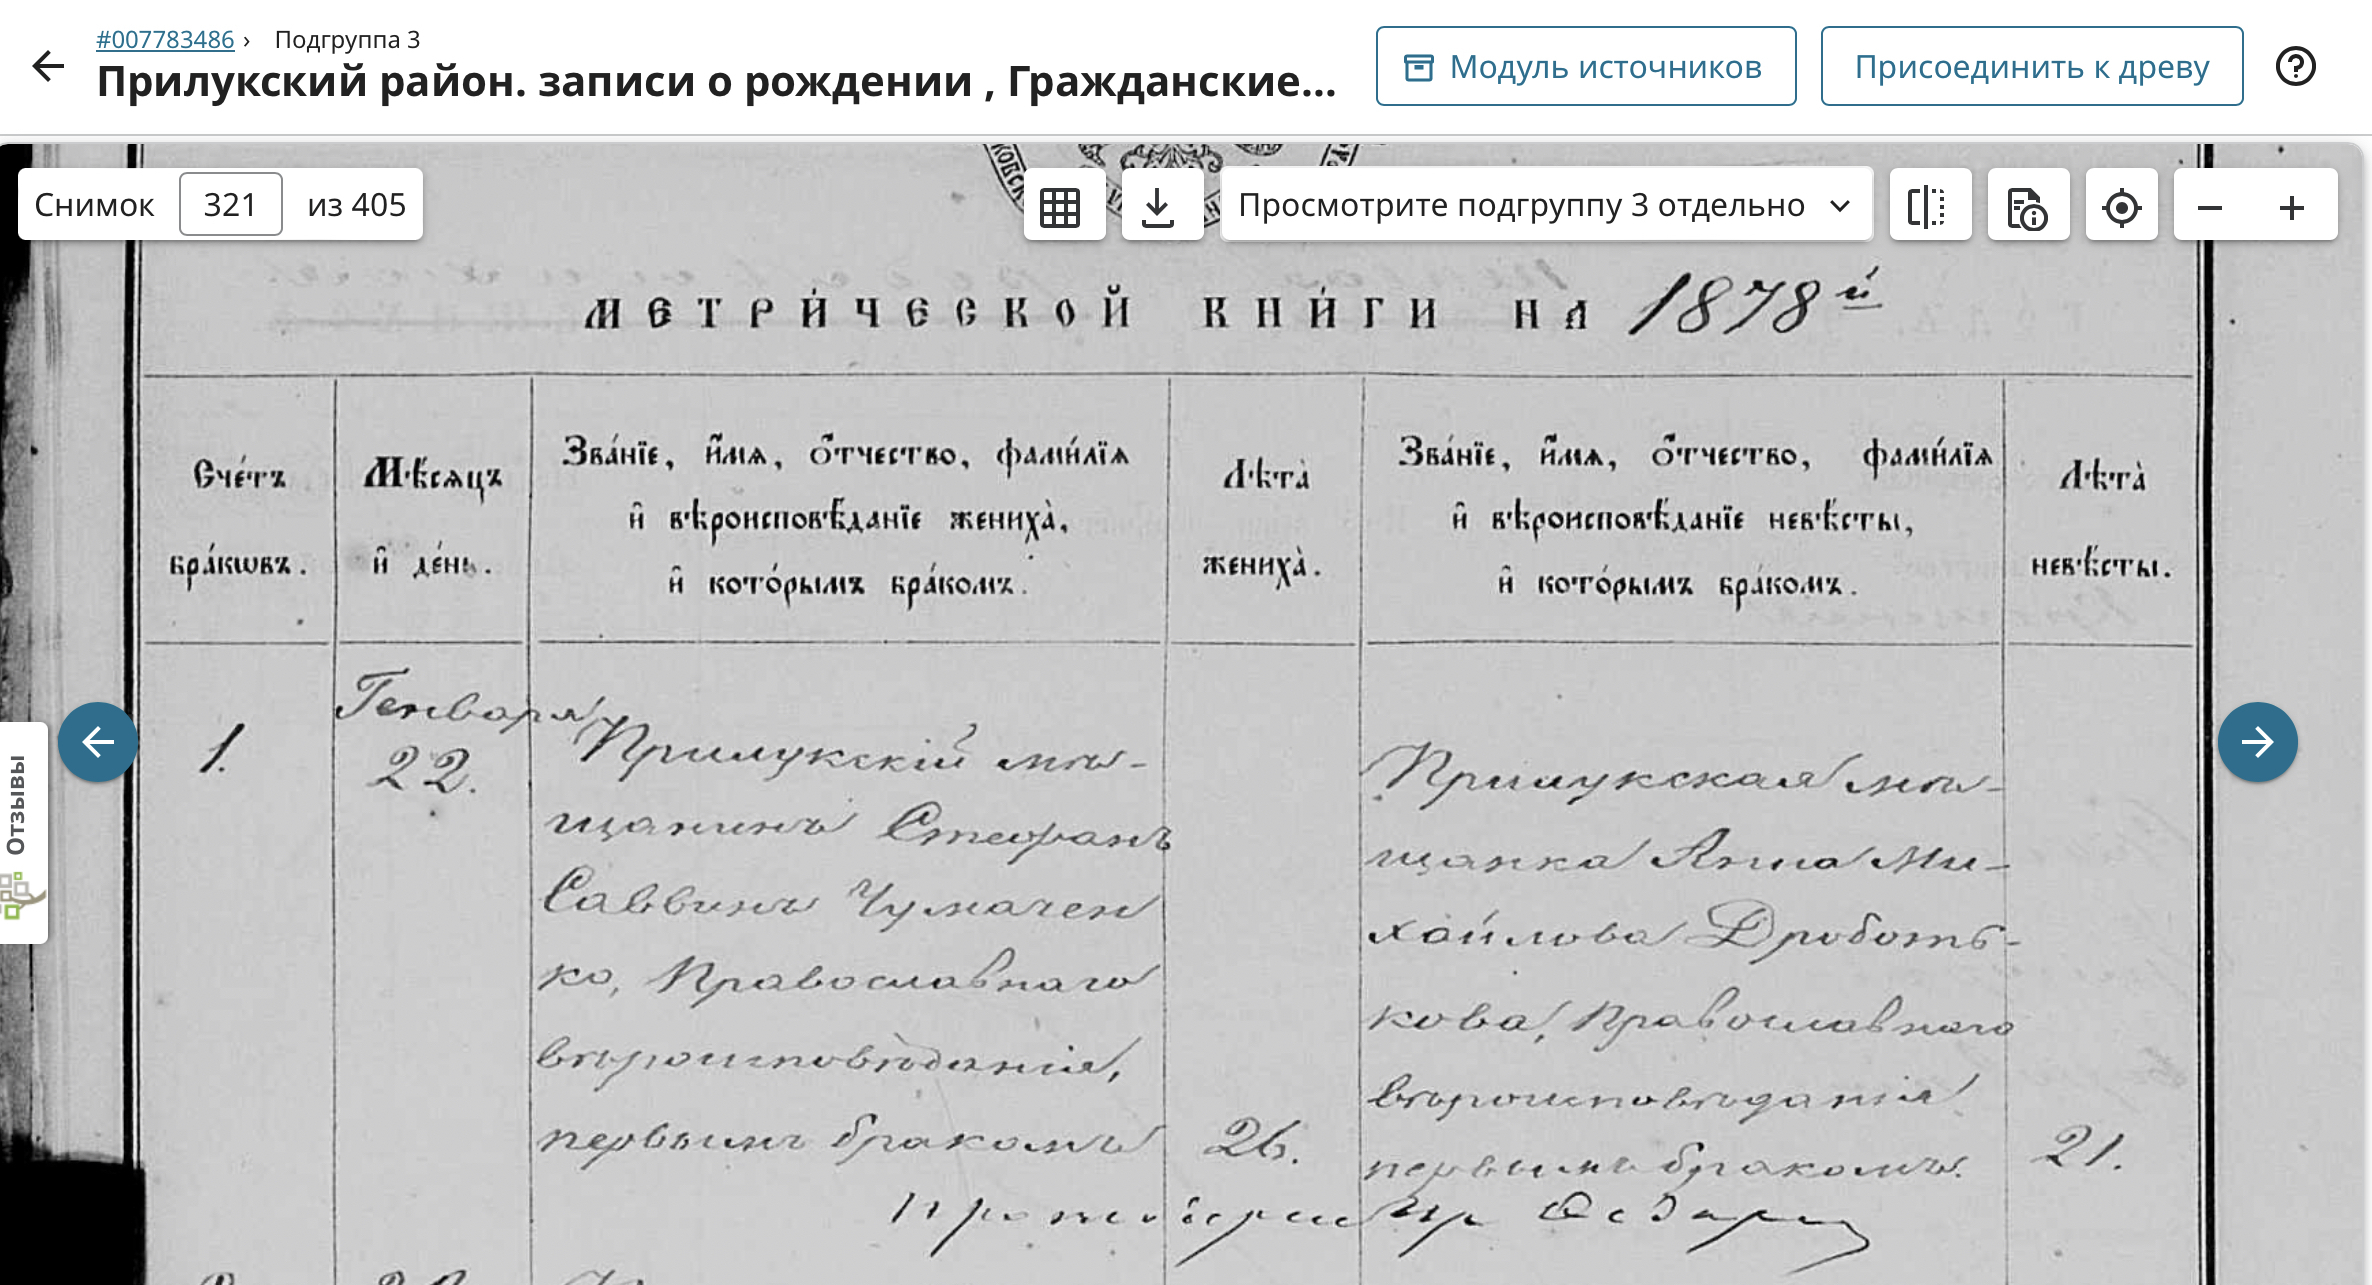 #007783486 › Подгруппа 3
Прилукский район. записи о рождении , Гражданские...
Модуль источников
Присоединить к древу
Снимок 321 из 405
Просмотрите подгруппу 3 отдельно
Отзывы
МЕТРИ́ЧЕСКОЙ КНИ́ГИ НА 1878й
Сче́тъ бра́кѡвъ.
Мѣ́сѧцъ и҆ де́нь.
Зва́нїе, и҆́мѧ, ѻ҆́тчество, фами́лїѧ
и҆ вѣроисповѣ́данїе жениха̀,
и҆ кото́рымъ бра́комъ.
Лѣта̀ жениха̀.
Зва́нїе, и҆́мѧ, ѻ҆́тчество, фами́лїѧ
и҆ вѣроисповѣ́данїе невѣ́сты,
и҆ кото́рымъ бра́комъ.
Лѣта̀ невѣ́сты.
1.
Генваря
22.
Прилукскій мѣ-
щанинъ Стефанъ
Саввинъ Чумачен
ко, Православнаго
вѣроисповѣданія,
первымъ бракомъ
26.
Прилукская мѣ-
щанка Анна Ми-
хайлова Дроботь-
кова, Православнаго
вѣроисповѣданія
первымъ бракомъ.
21.